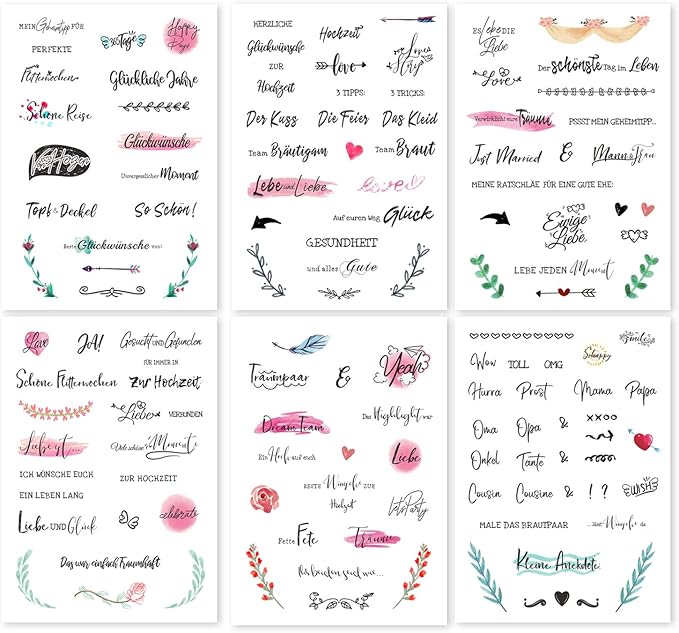 MEIN Geheimtipp FÜR
PERFEKTE
365 TAGE
Happy
Days
Flitterwochen
Glückliche Jahre
Schöne Reise
Glückwünsche
Unvergesslicher Moment
Topf & Deckel
So Schön!
Beste Glückwünsche von:
HERZLICHE
Glückwünsche
ZUR
Hochzeit
Hochzeit
love
Love
Story
3 TIPPS:
3 TRICKS:
Der Kuss
Die Feier
Das Kleid
Team Bräutigam
Team Braut
Lebe und Liebe
Love
Auf euren Weg Glück
GESUNDHEIT
und alles Gute
ES Lebe DIE
Liebe
Love
Der schönste Tag im Leben
Verwirklicht eure Träume
PSSST MEIN GEHEIMTIPP...
Just Married
&
Mann & Frau
MEINE RATSCHLÄGE FÜR EINE GUTE EHE:
Ewige
Liebe
LEBE JEDEN Moment
Love
JA!
Gesucht und Gefunden
FÜR IMMER IN
Schöne Flitterwochen
Zur Hochzeit
Liebe VERBUNDEN
Liebe ist...
Viele schöne Momente
ICH WÜNSCHE EUCH
ZUR HOCHZEIT
EIN LEBEN LANG
Liebe UND Glück
celebrate
Das war einfach Traumhaft
Traumpaar
&
Yeah
Dream Team
Das Highlight war
Ein Hoch auf euch
Liebe
BESTE Wünsche ZUR
Hochzeit
Let's Party
Fette Fete
Träume
Wir beiden sind wie...
smile
Wow
TOLL
OMG
Hurra
Prost
Mama
Papa
Oma
Opa
&
XXOO
Onkel
Tante
&
Cousin
Cousine
&
! ?
WISH
MALE DAS BRAUTPAAR
Kleine Anekdote